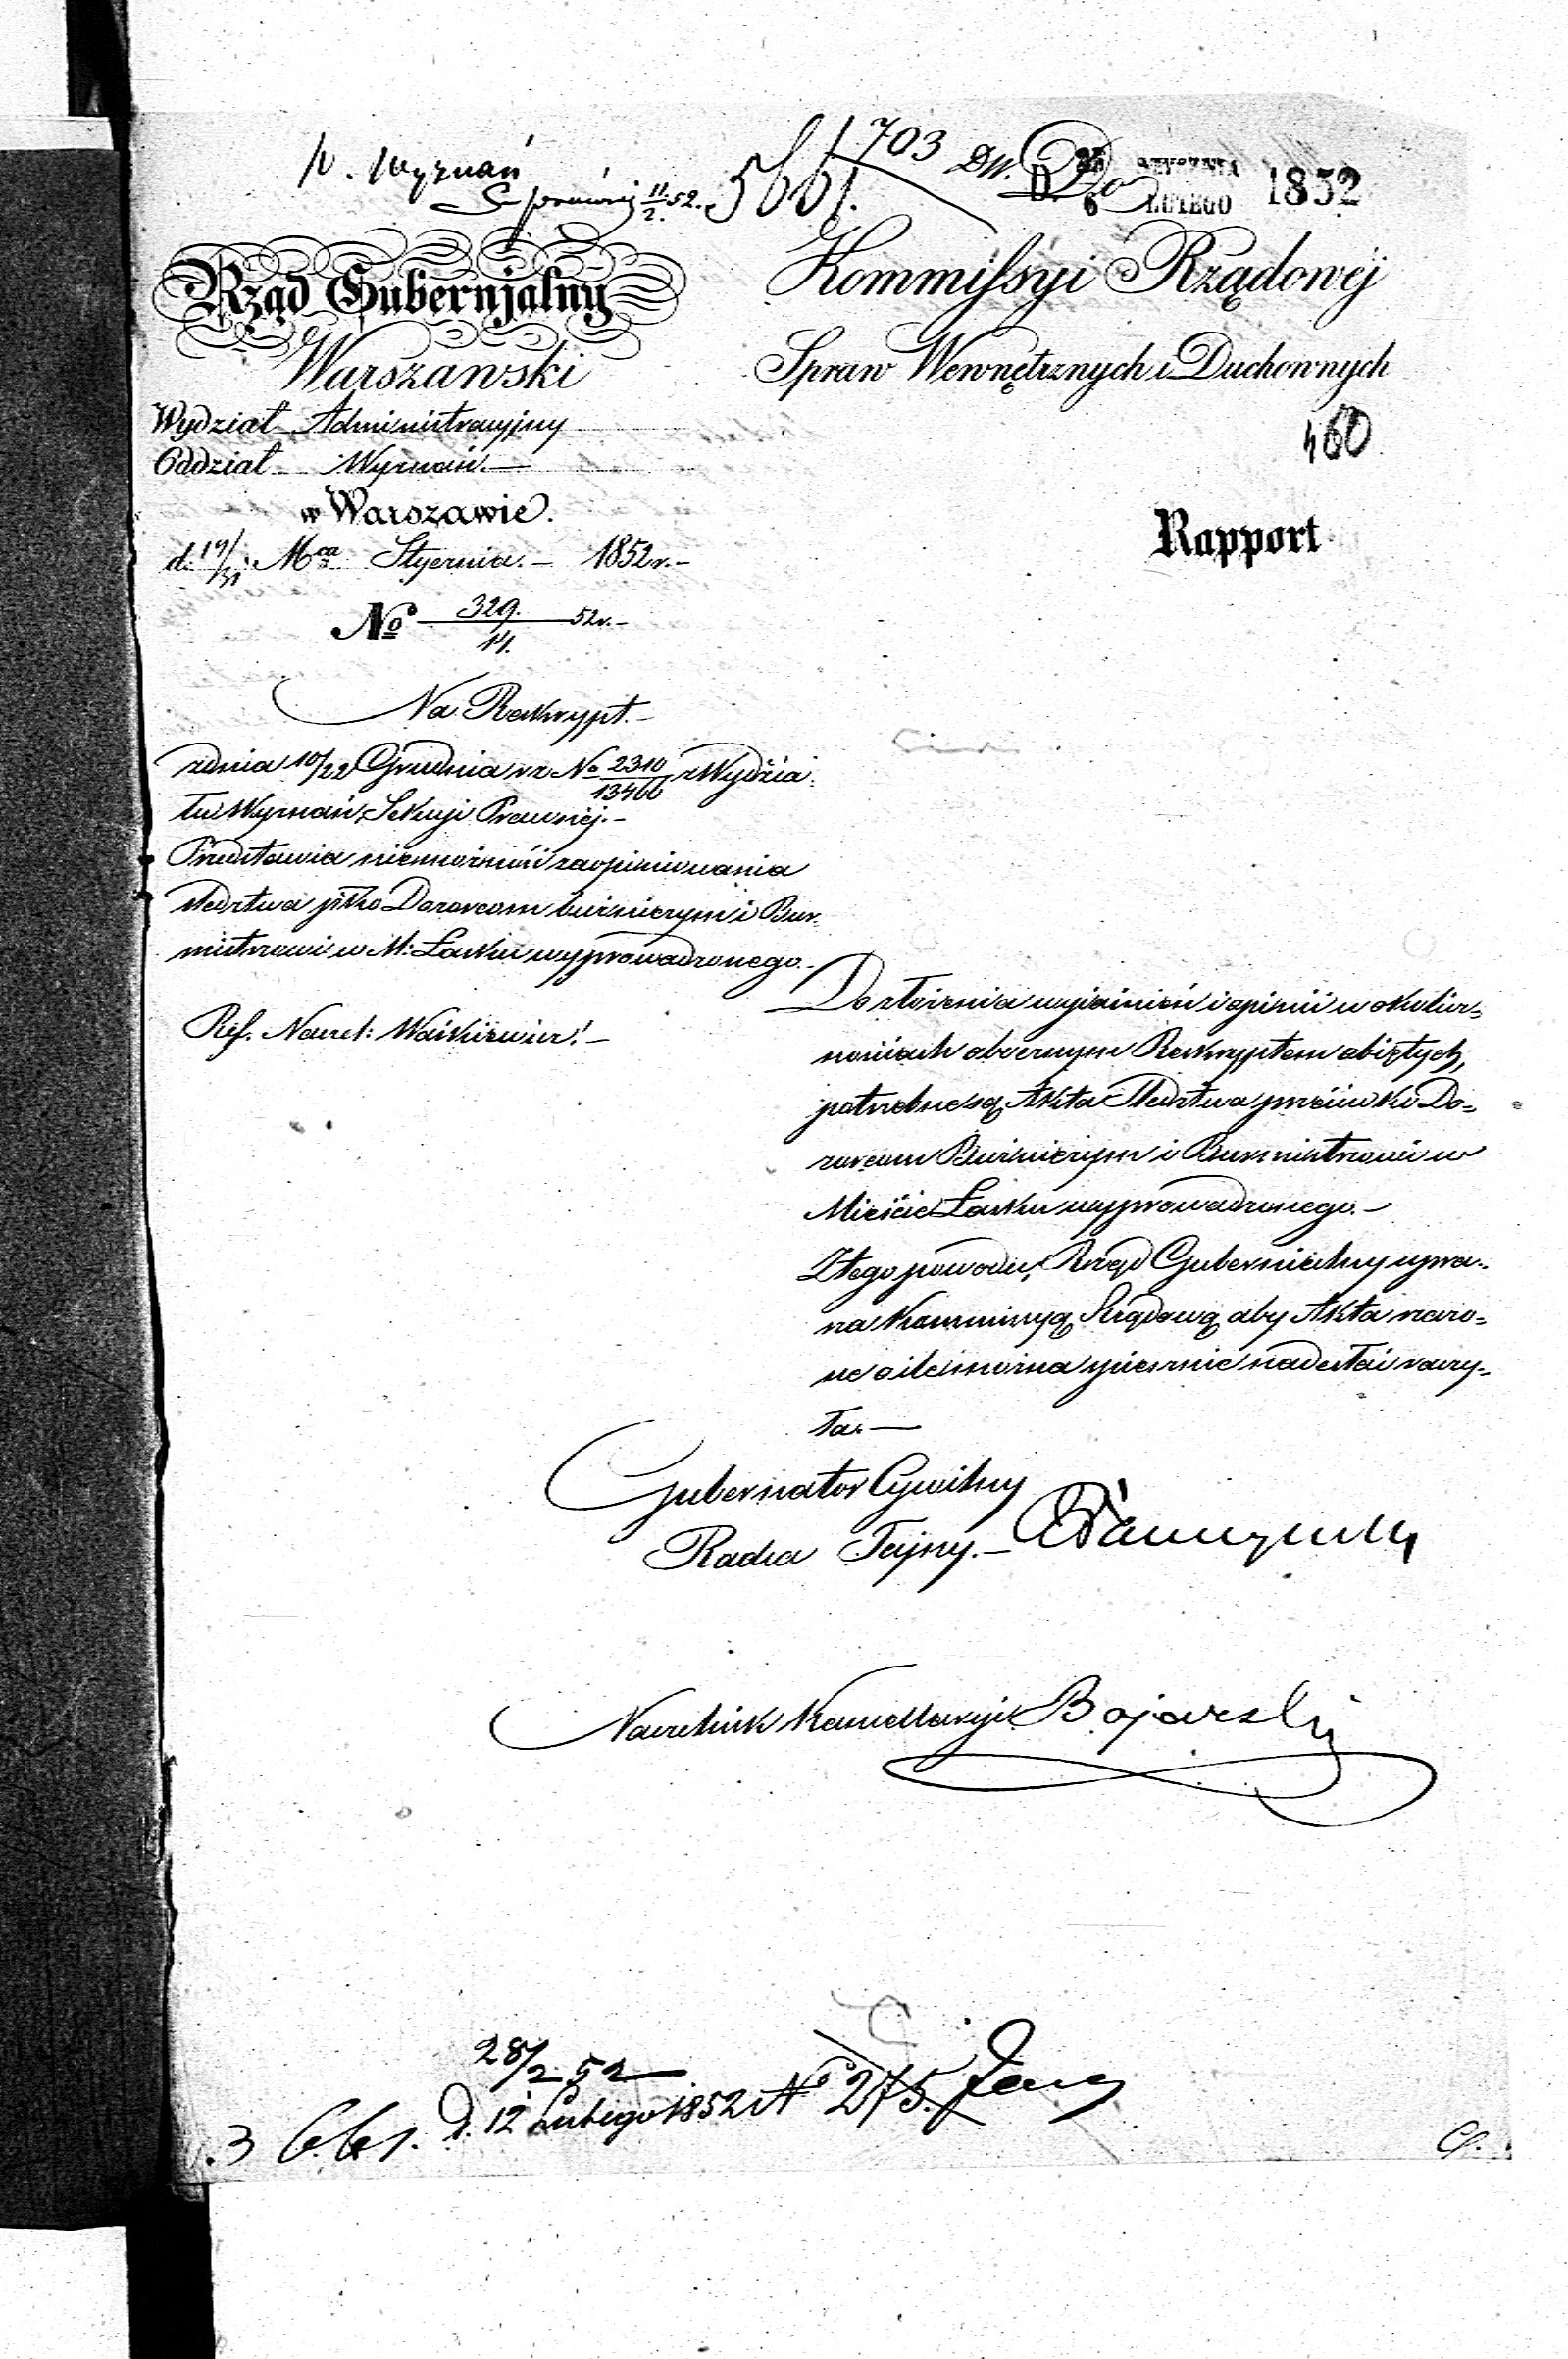 W. Wyznań
S. prawnej 11/2 52.
5661.
703 DW.
D. 25 STYCZNIA
6 LUTEGO 1852
Do
Rząd Gubernjalny
Warszawski
Wydział Administracyjny
Oddział Wyznań.—
w Warszawie.
d. 19/31 Mca Stycznia.— 1852 r.—
No 329./14. 52 r.—
Kommissyi Rządowej
Spraw Wewnętrznych i Duchownych
460
Rapport
Na Reskrypt.—
z dnia 10/22 Grudnia r z No 2310/13466 z Wydzia-
łu Wyznań, Sekcyi Prawnej.—
Przedstawia niemożność zaopiniowania
śledztwa pko Dozorcom bużniczym i Bur-
mistrzowi w M: Łasku wyprowadzonego.—
Ref. Naczel: Waśkiewicz.—
Do złożenia wyjaśnień i opinii w okolicz-
nościach obocznym Reskryptem objętych,
potrzebne są Akta Śledztwa przeciwko Do-
zorcom Bużniczym i Burmistrzowi w
Mieście Łasku wyprowadzonego.—
Z tego powodu, Rząd Gubernialny upra-
sza Kommissyą Rządową, aby Akta rzeczo-
ne o ile można spiesznie nadesłać raczy-
ła.—
Gubernator Cywilny
Radca Tajny.—
Naczelnik Kancellaryi Bojarski
28/2 52
D. 12 Lutego 1852 No 275.
3 661.